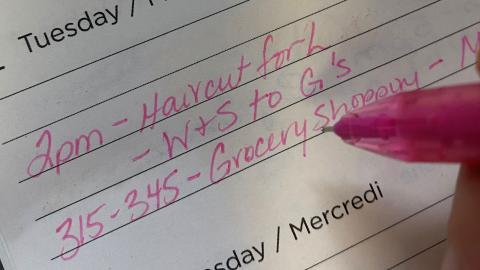 Tuesday /
2pm - Haircut for L
- W+S to G's
315-345 - Grocery Shopping -
sday / Mercredi